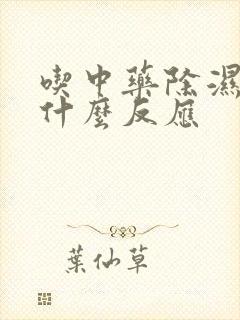 喫中藥除濕
什麼反應
葉仙草